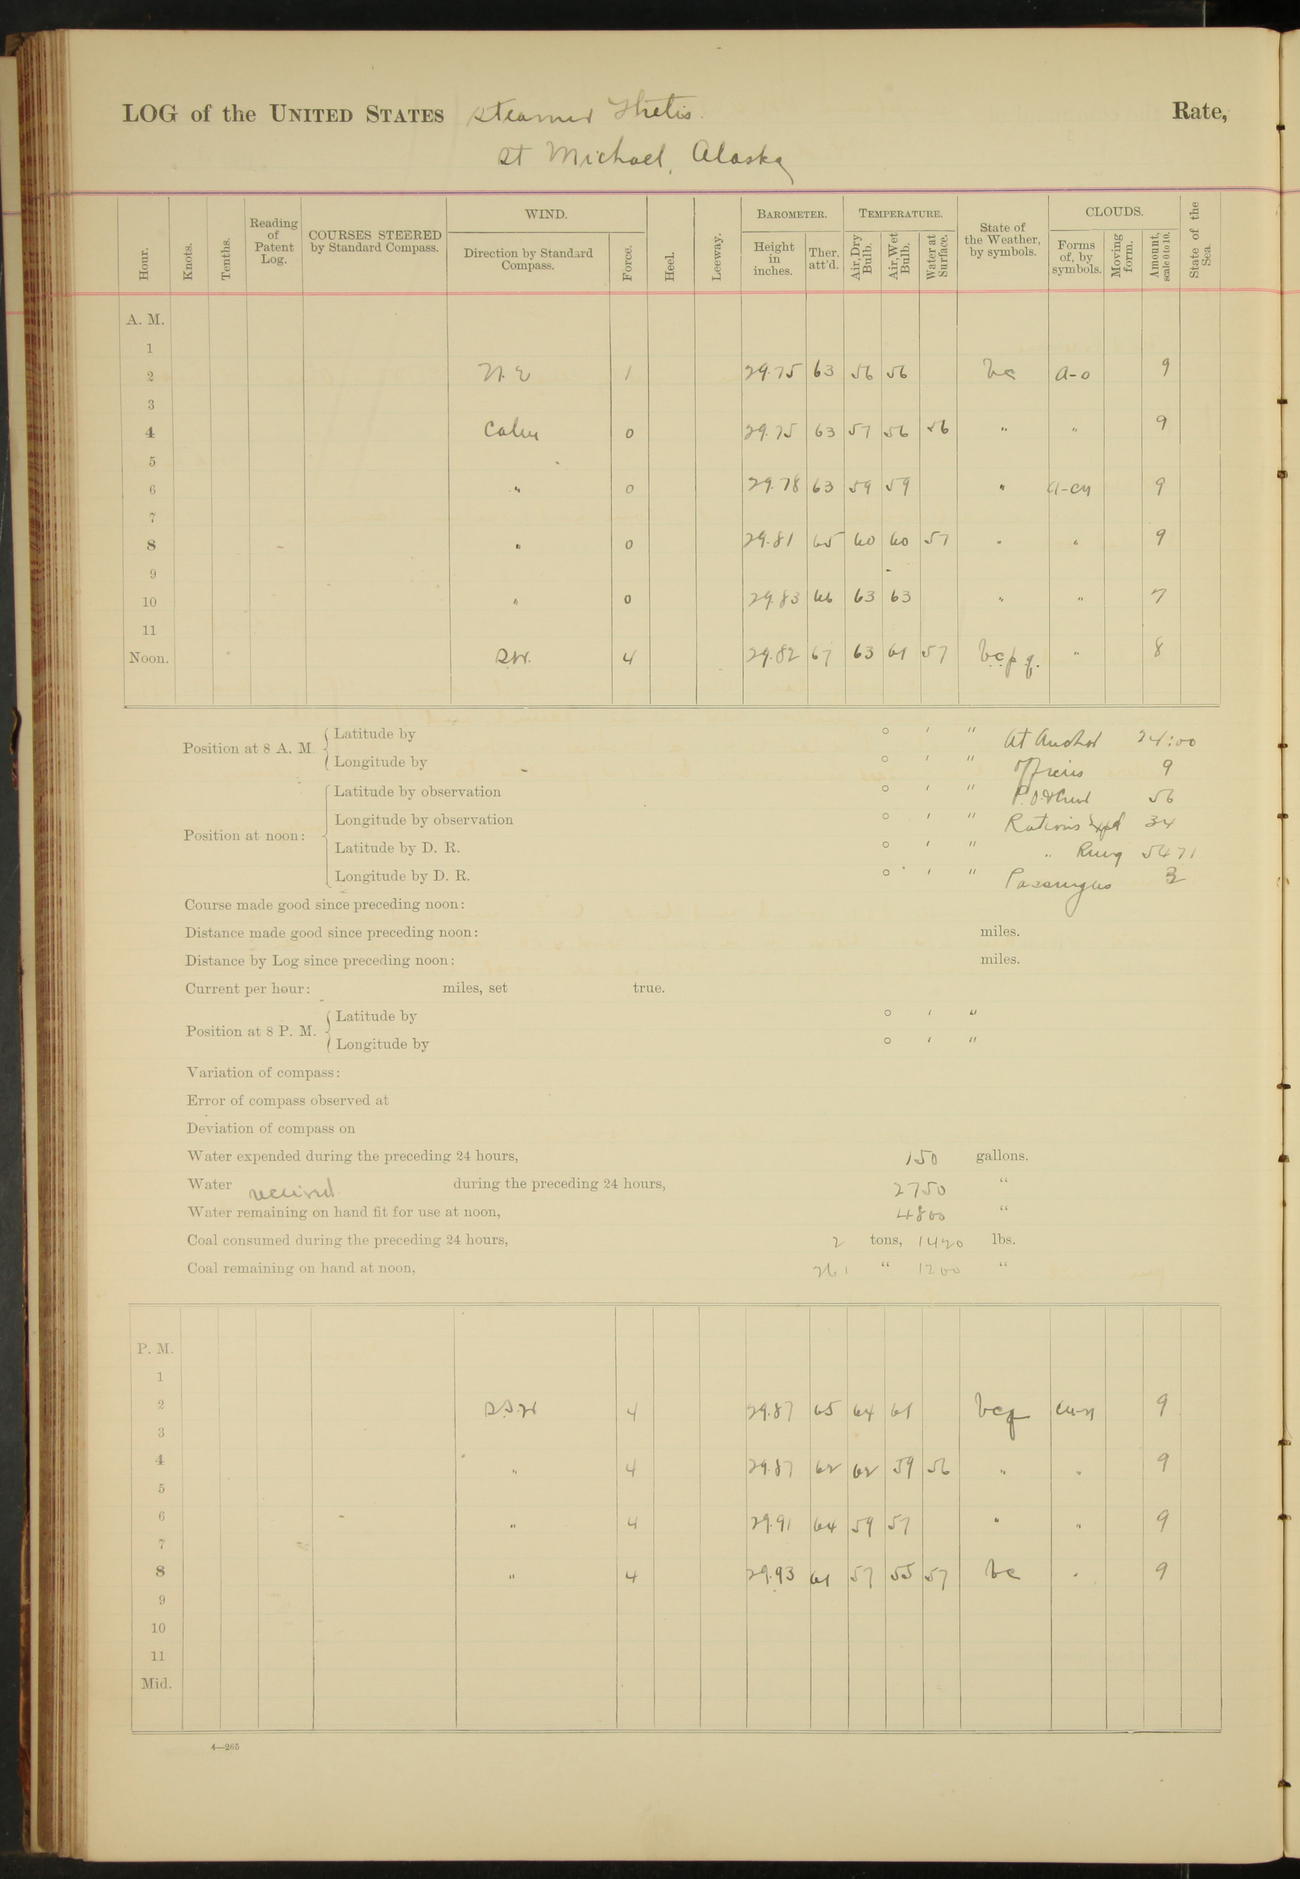 LOG of the UNITED STATES Steamer Thetis. Rate,
St Michael, Alaska
Hour. Knots. Tenths. Reading of Patent Log. COURSES STEERED by Standard Compass. WIND. Direction by Standard Compass. Force. Heel. Leeway. BAROMETER. Height in inches. Ther. att'd. TEMPERATURE. Air, Dry Bulb. Air, Wet Bulb. Water at Surface. State of the Weather, by symbols. CLOUDS. Forms of, by symbols. Moving form. Amount, scale 0 to 10. State of the Sea.
A. M.
1
2 N. E 1 29.75 63 56 56 bc a-o 9
3
4 Calm 0 29.75 63 57 56 56 " " 9
5
6 " 0 29.78 63 59 59 " 9
7
8 " 0 29.81 65 60 60 57 " " 9
9
10 " 0 29.83 66 63 63 " " 7
11
Noon. SW. 4 29.82 67 63 61 57 bcpq. " 8
Position at 8 A. M. Latitude by ° ′ ″ At Anchor 24:00
Longitude by ° ′ ″ Officers 9
Position at noon: Latitude by observation ° ′ ″ P.O. & Crew 56
Longitude by observation ° ′ ″ Rations Expd 34
Latitude by D. R. ° ′ ″ " Rmg 5471
Longitude by D. R. ° ′ ″ Passengers 3
Course made good since preceding noon:
Distance made good since preceding noon: miles.
Distance by Log since preceding noon: miles.
Current per hour: miles, set true.
Position at 8 P. M. Latitude by ° ′ ″
Longitude by ° ′ ″
Variation of compass:
Error of compass observed at
Deviation of compass on
Water expended during the preceding 24 hours, 150 gallons.
Water received during the preceding 24 hours, 2750 "
Water remaining on hand fit for use at noon, 4800 "
Coal consumed during the preceding 24 hours, 2 tons, 1420 lbs.
Coal remaining on hand at noon, 261 " 1200 "
P. M.
1
2 SSW 4 29.87 65 64 61 bcq cu-n 9
3
4 " 4 29.87 62 62 59 56 " " 9
5
6 " 4 29.91 64 59 57 " " 9
7
8 " 4 29.93 61 57 55 57 bc " 9
9
10
11
Mid.
4—265